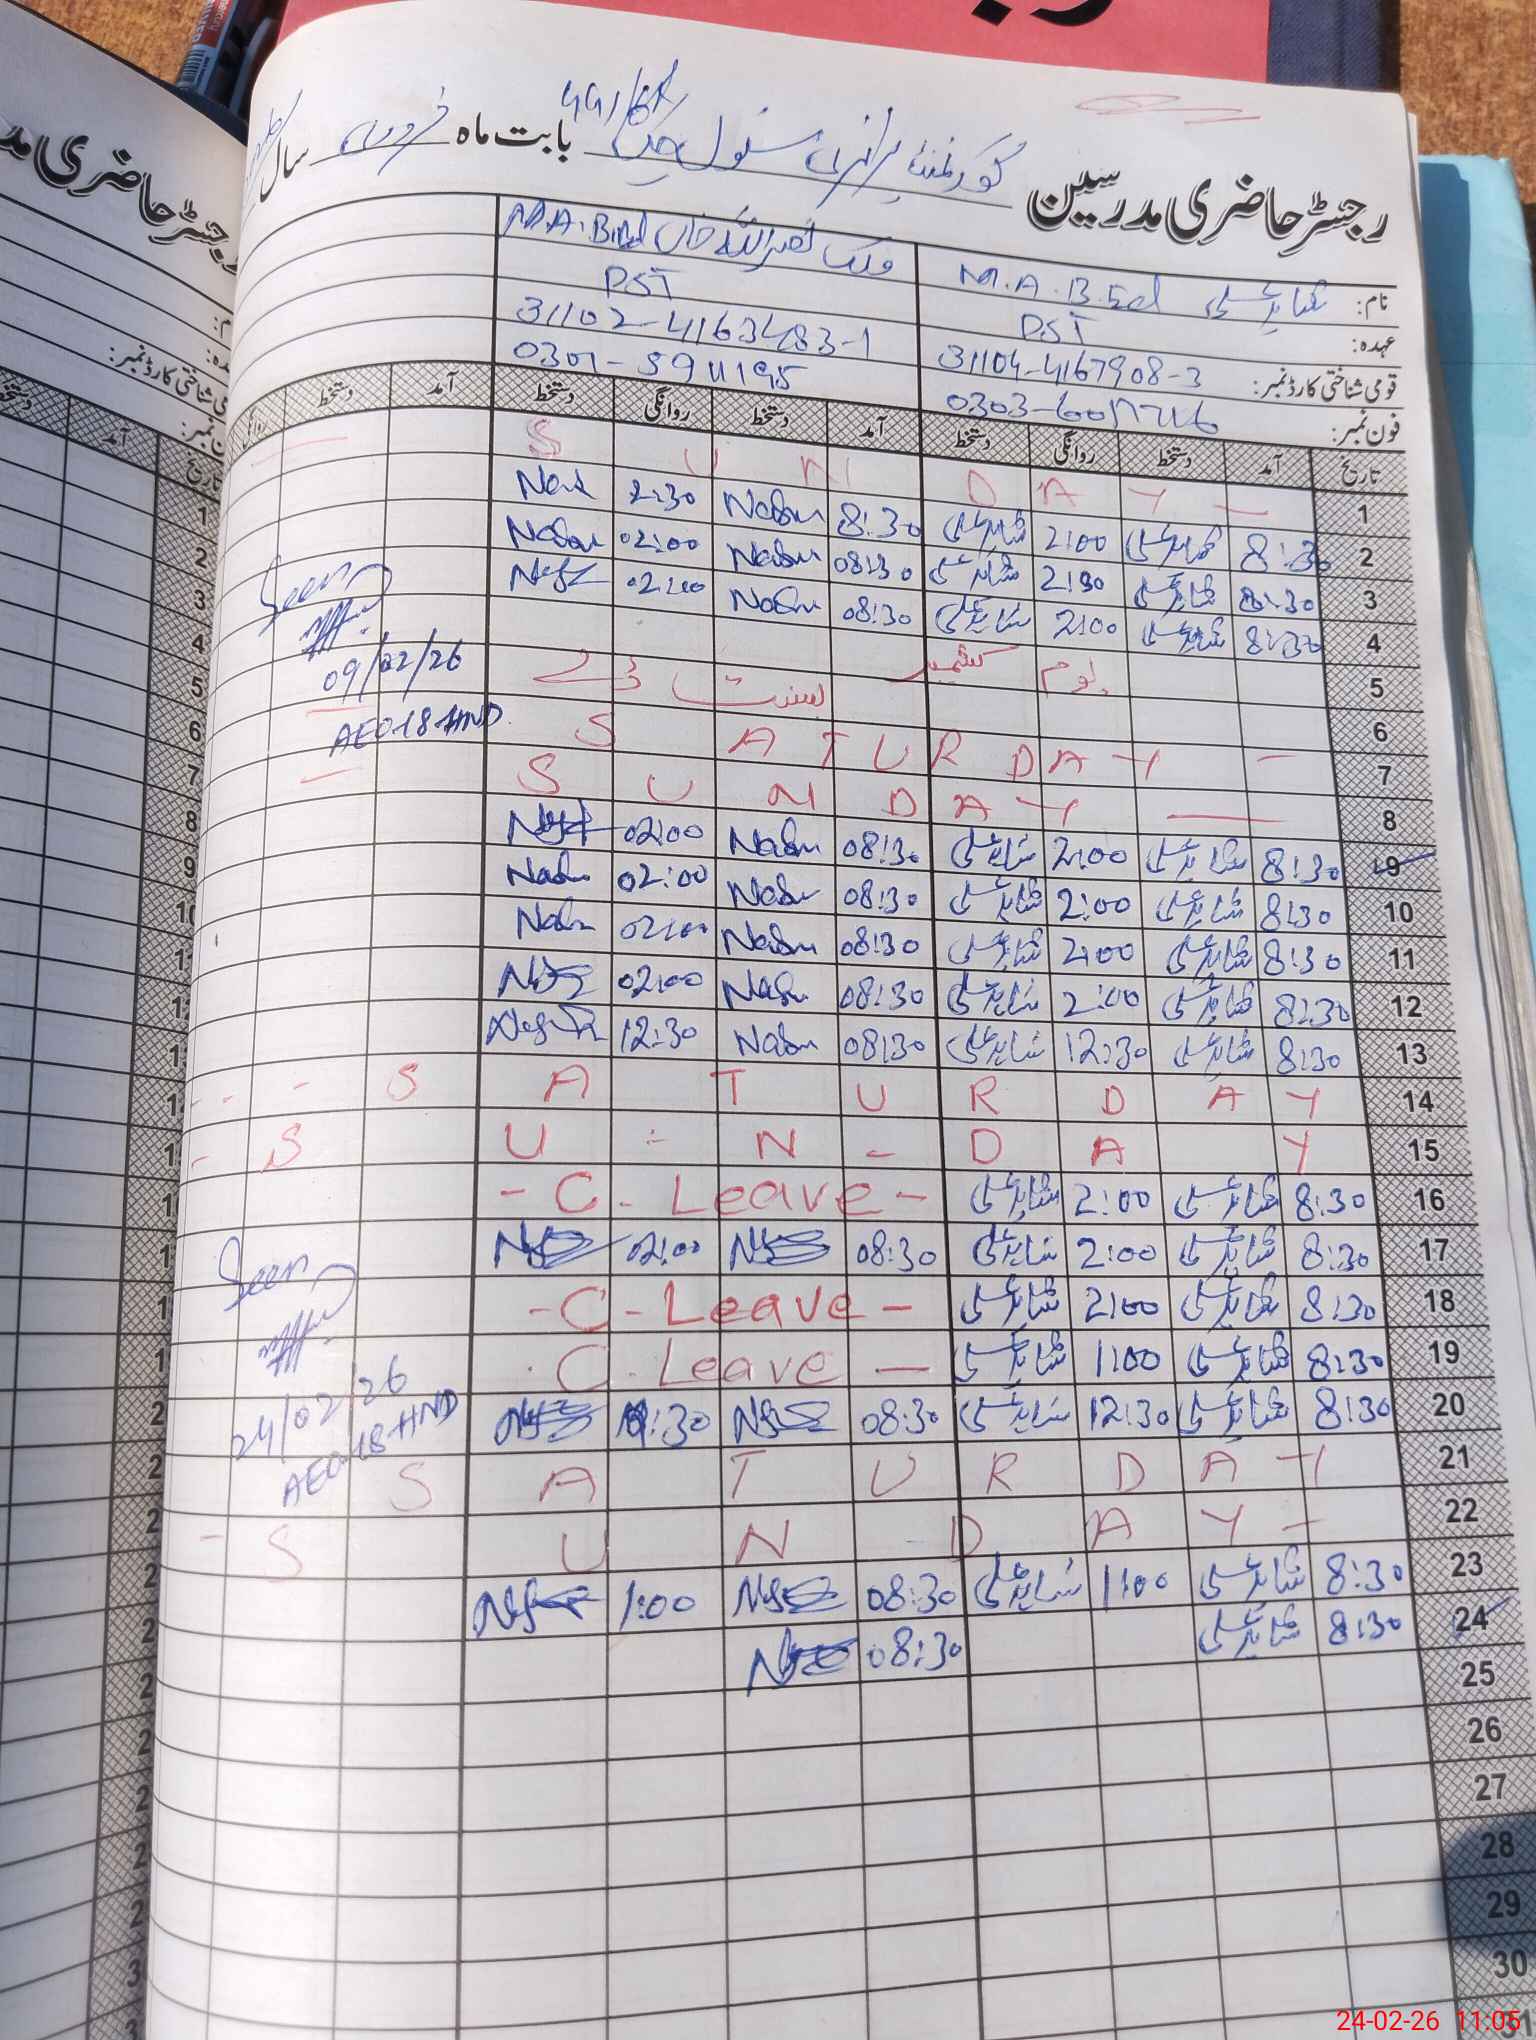 رجسٹر حاضری مدرسین گورنمنٹ پرائمری سکول چک بابت ماہ فروری سال
نام: شاہد علی M.A. B.Ed ملک نصراللہ خان M.A. B.Ed
عہدہ: PST PST
قومی شناختی کارڈ نمبر: 31104-4167908-3 31102-4163483-1
فون نمبر:
تاریخ آمد دستخط روانگی دستخط آمد دستخط روانگی دستخط آمد دستخط
1 SUNDAY
2 8:30 شاہد علی 2:00 شاہد علی 8:30 2:30
3 8:30 شاہد علی شاہد علی 08:30 02:00
4 8:30 شاہد علی 2:00 شاہد علی 08:30 02:00
5 یوم کشمیر
6 بسنت ڈے
7 SATURDAY
8 SUNDAY
9 8:30 شاہد علی 2:00 شاہد علی 08:30 02:00
10 8:30 شاہد علی 2:00 شاہد علی 08:30 02:00
11 8:30 شاہد علی 2:00 شاہد علی 08:30 02:00
12 8:30 شاہد علی 2:00 شاہد علی 08:30 02:00
13 8:30 شاہد علی 12:30 شاہد علی 08:30 12:30
14 SATURDAY
15 SUNDAY
16 8:30 شاہد علی 2:00 شاہد علی - C - Leave -
17 8:30 شاہد علی 2:00 شاہد علی 08:30 02:00
18 8:30 شاہد علی 2:00 شاہد علی - C - Leave -
19 8:30 شاہد علی 1:00 شاہد علی C - Leave -
20 8:30 شاہد علی 12:30 شاہد علی 08:30
21 SATURDAY
22 SUNDAY
23 8:30 شاہد علی 1:00 شاہد علی 08:30 1:00
24 8:30 شاہد علی 08:30
25
26
27
28
29
30
31
Seen
09/02/26
AEO-18-HND
Seen
24/02/26
AEO-18-HND
رجسٹر حاضری
24-02-26 11:05